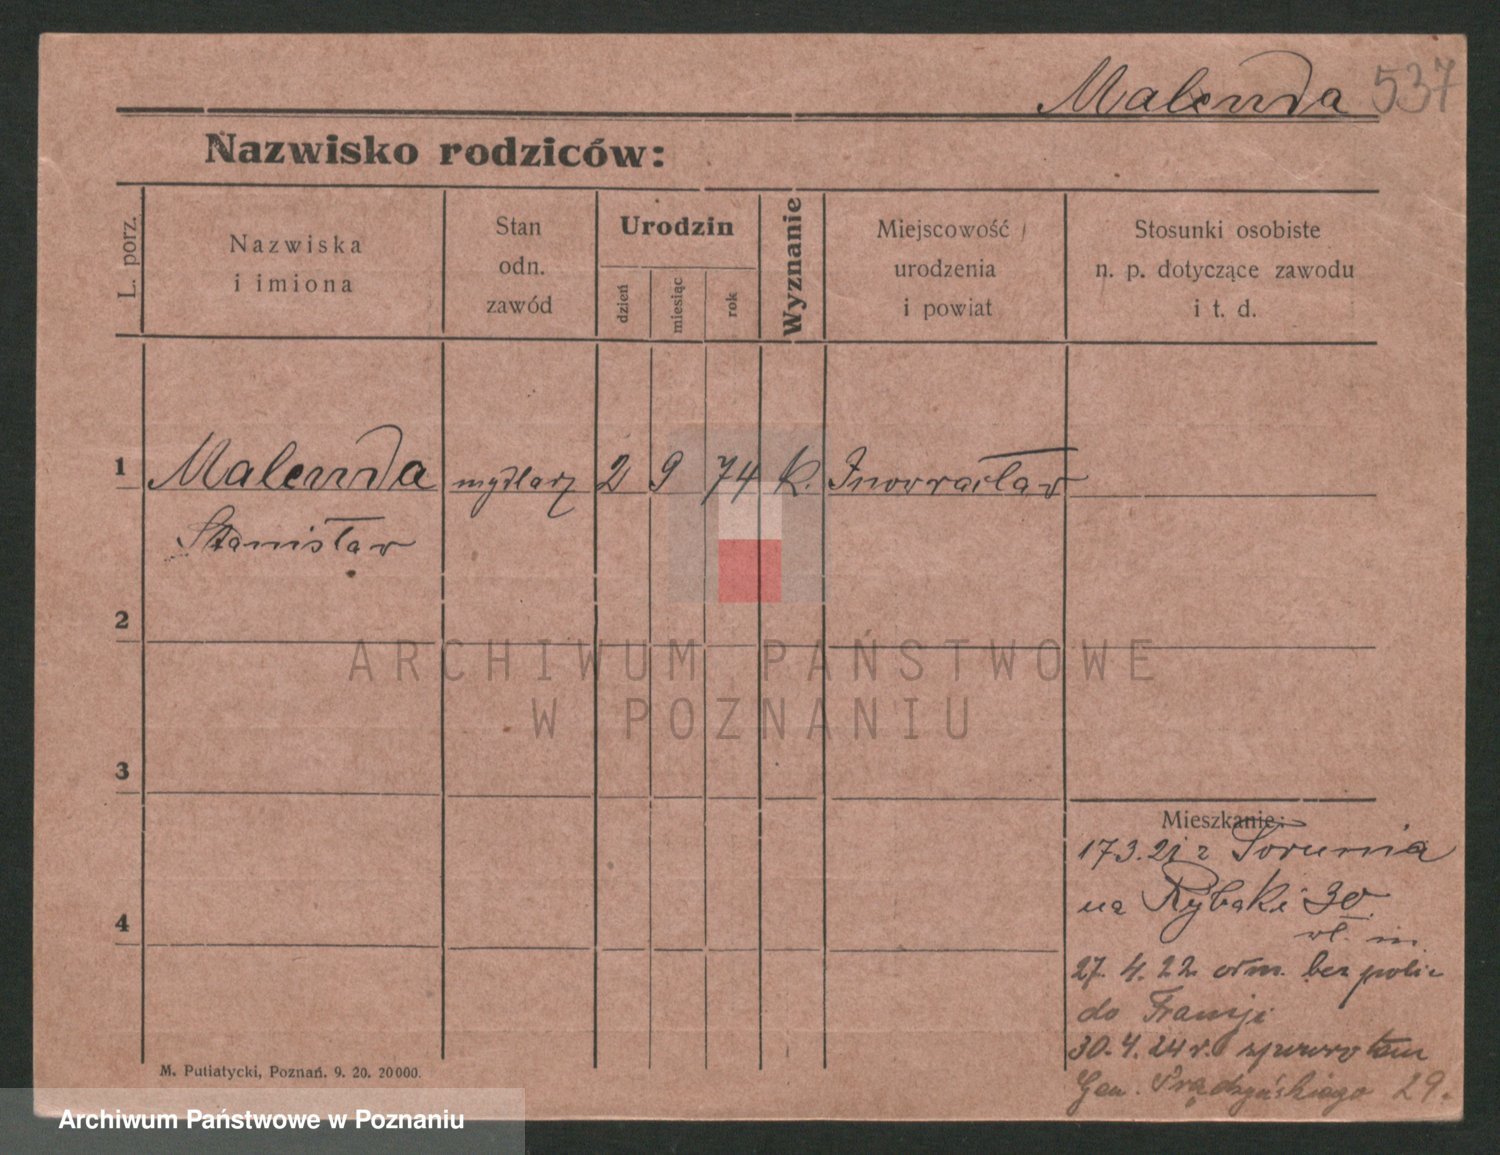 Malenda 537
Nazwisko rodziców:
L. porz.
Nazwiska
i imiona
Stan
odn.
zawód
Urodzin
dzień
miesiąc
rok
Wyznanie
Miejscowość
urodzenia
i powiat
Stosunki osobiste
n. p. dotyczące zawodu
i t. d.
1 Malenda mydlarz 2 9 74 k. Inowrocław
Stanisław
2
ARCHIWUM PAŃSTWOWE
W POZNANIU
3
Mieszkanie:
17.3.21 z Torunia
na Rybaki 30
wł. m.
4
27. 4. 22 odm. bez polic
do Francji
30. 4. 24 r. spowrotem
Gen. Prądzyńskiego 29.
M. Putiatycki, Poznań. 9. 20. 20000.
Archiwum Państwowe w Poznaniu